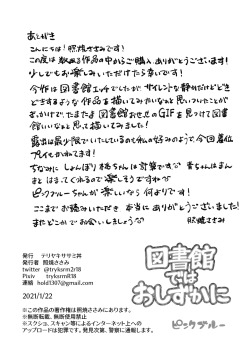 あとがき
こんにちは！照焼ささみです！
この度は数ある作品の中からご購入、ありがとうございます！
少しでもお楽しみいただけたら幸いです！
今作は図書館エッチでしたが、サイレントな静かだけどどき
どきするような作品を描いてみたいなと思いついたことが
きっかけで、たまたま図書館お忍びのGIFを見つけて図書
館いいなと思って描いてみました！
露出は最少限でいたしているのも私の好みのようで、今回着位
プレイをかれてます！
ちなみにしょんぼり柊ちゃんは計算ですが 杏ちゃんはまん
まとはまってくれるので楽しそうですね
ピンクブルーちゃんが愛らしいなあ…
ここまでお読みいただき本当にありがとうございました！
またどこかでお会いしましょう
照焼ささみ
発行 テリヤキササミ丼
発行者 照焼ささみ
twitter @tryksrm2r18
Pixiv tryksrmR18
連絡 hold1307@gmail.com
2021/1/22
図書館
では
おしずかに
ピンクブルー
※この作品の著作権は照焼ささみにあります。
※無断転載、無断使用禁止
※スクショ、スキャン等によるインターネット上への
アップロードは犯罪です。発見次第、警察に通報します。